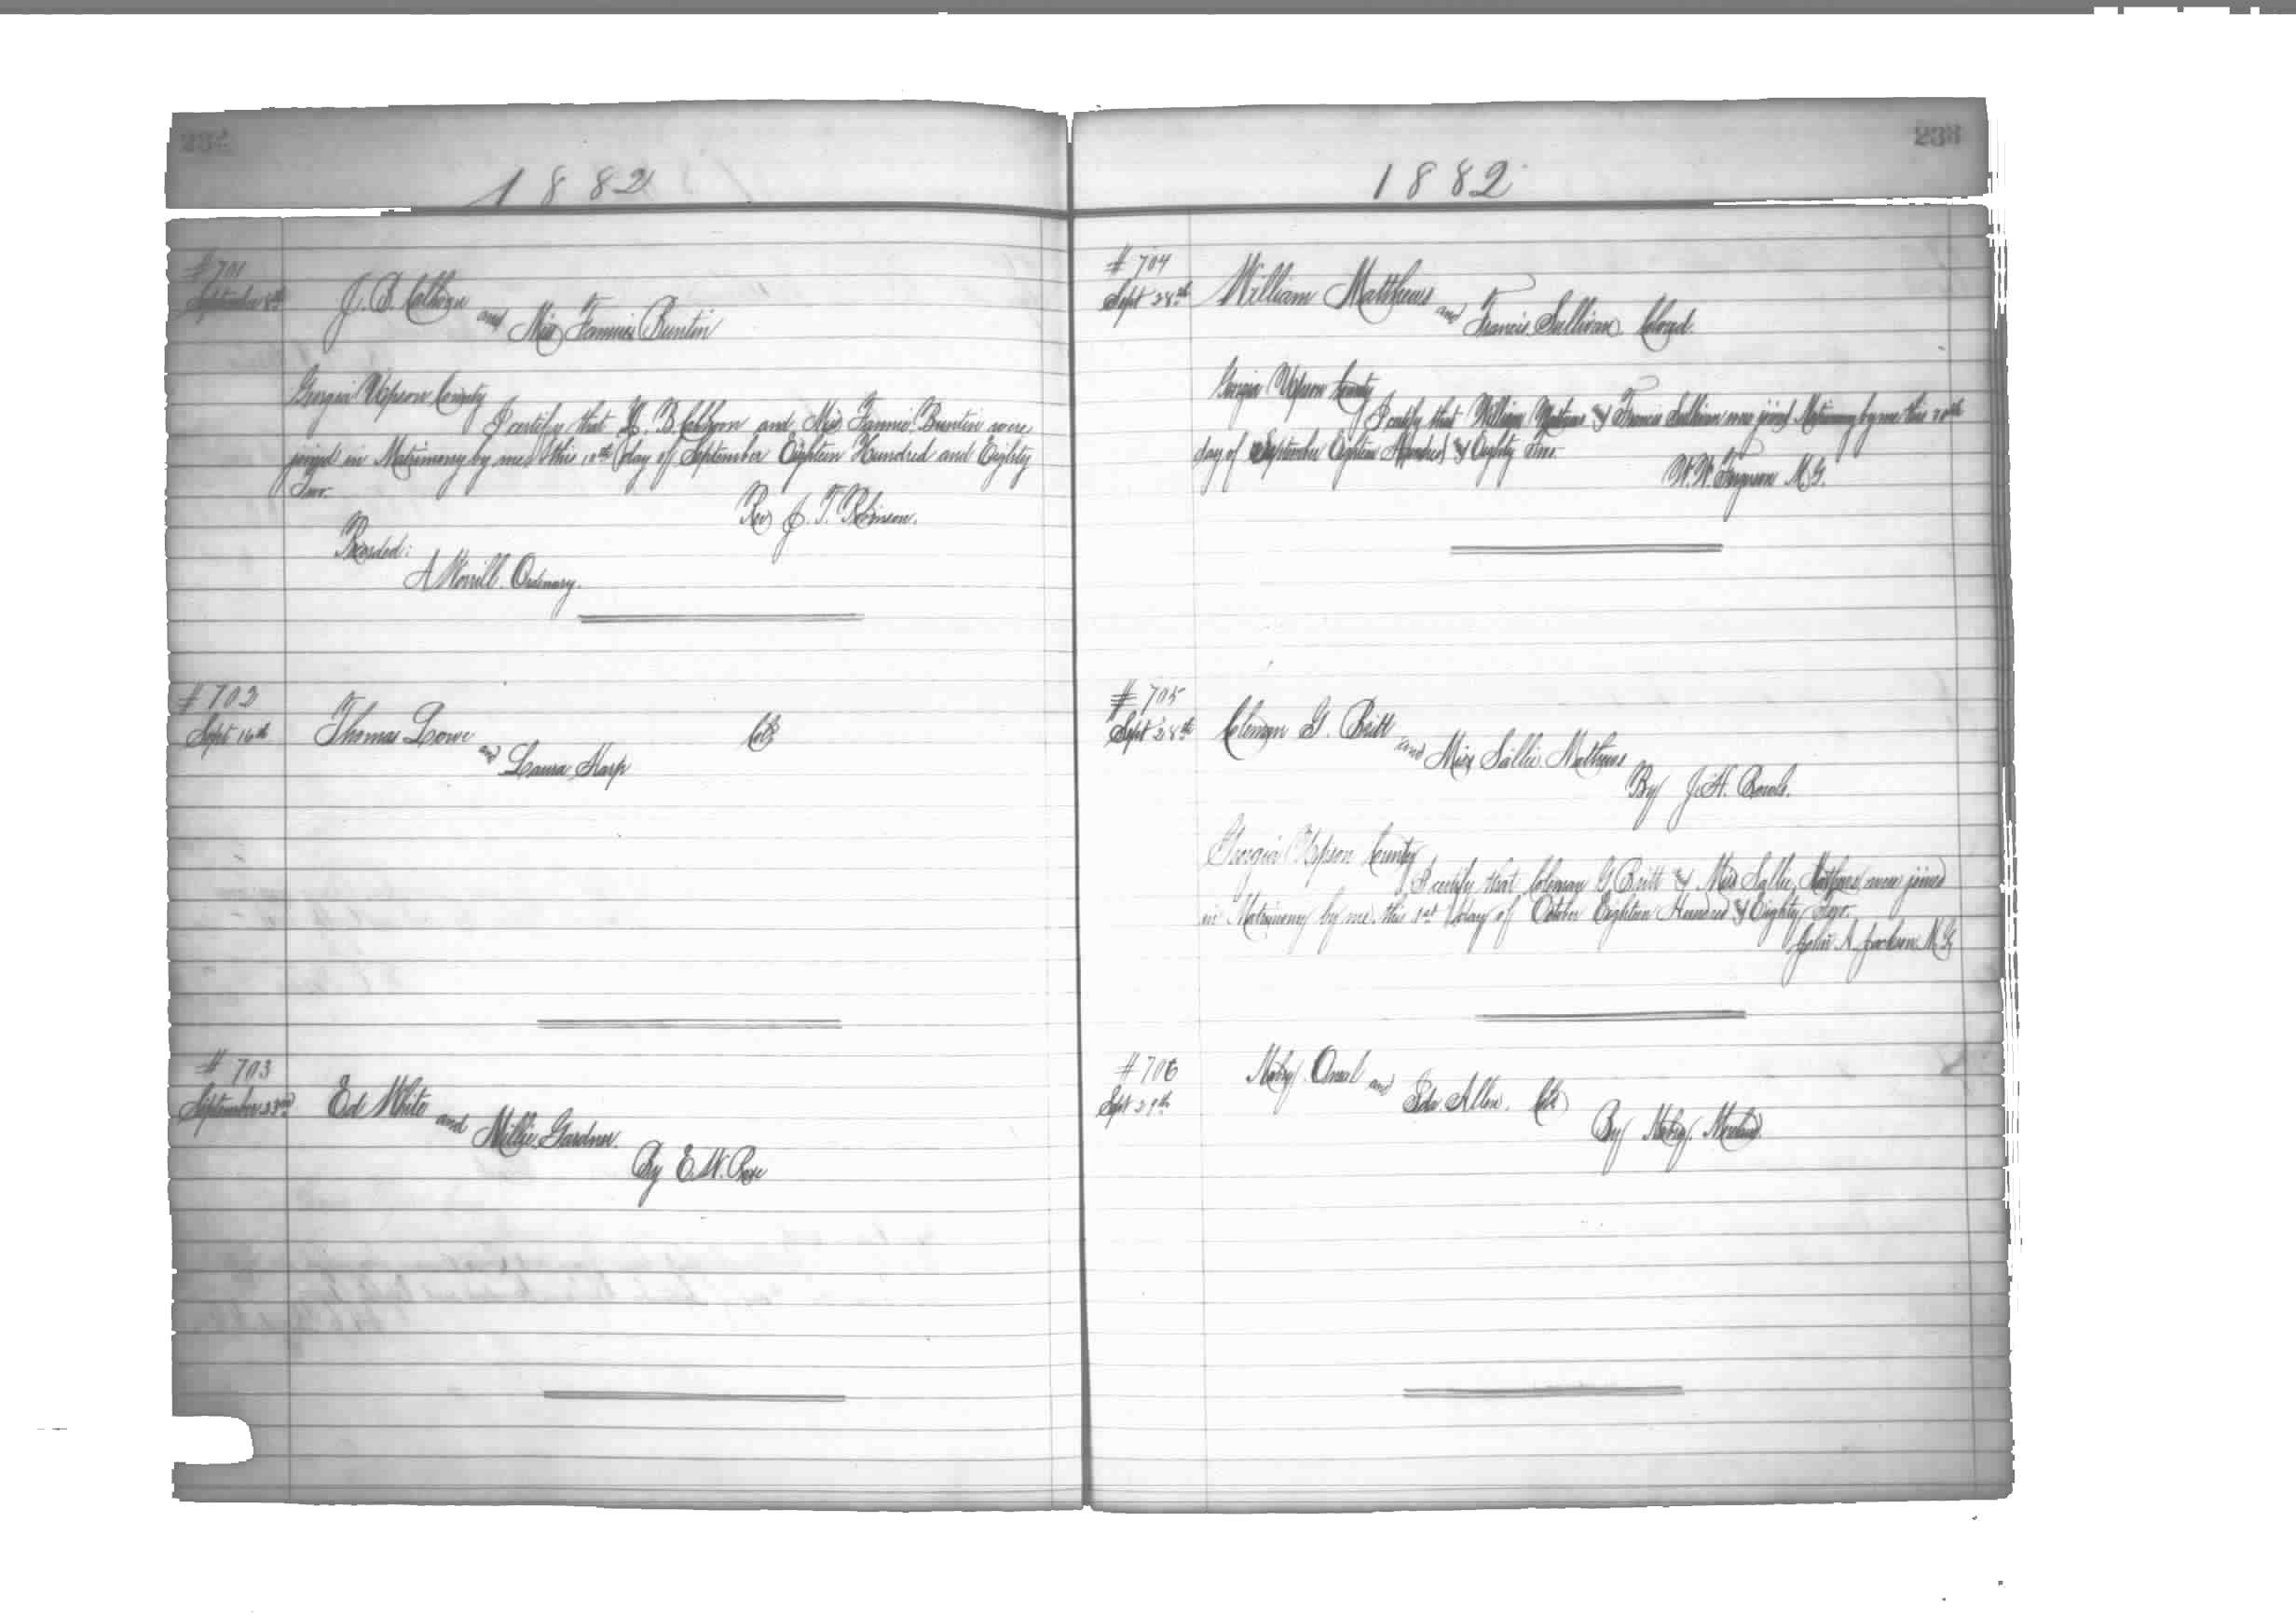 232
1882
# 701
September 8th
J. B. Calhoun
and Miss Fannie Buntin
Georgia Upson County
I certify that J. B. Calhoun and Miss Fannie Buntin were
joined in Matrimony by me this 10th day of September Eighteen Hundred and Eighty
Two.
Rev J. T. Robinson.
Recorded:
A Worrill Ordinary.
# 702
Sept 16th
Thomas Lowe
Col
and Laura Harp
# 703
September 23rd
Ed White
and Millie Gardner.
By E. W. Rose
233
1882
# 704
Sept 28th
William Matthews
and Francis Sullivan. Cloyd.
Georgia Upson County
I certify that William & Francis Sullivan were joined Matrimony by me this
day of September Eighteen Hundred & Eighty Two.
W. W. Ferguson M G.
# 705
Sept 28th
Coleman G. Britt
and Miss Sallie Mathews
By J. H.
Georgia Upson County
I certify that Coleman G Britt & Miss Sallie Mathews were joined
in Matrimony by me this 1st day of October Eighteen Hundred & Eighty Two.
John A. Jackson M. G
# 706
Sept 29th
and Ida Allen. Col
By